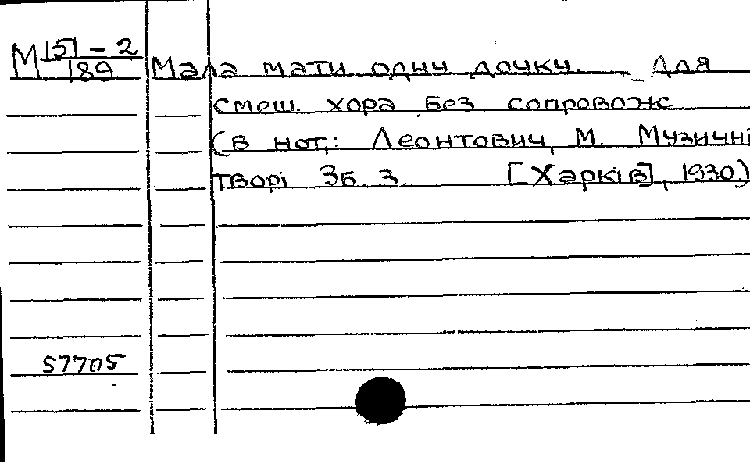 М 151-2
189
Мала мати одну дочку. Для
смеш. хора без сопровожс
(в нот.: Леонтович, М. Музичні
творі Зб. 3 [Харків], 1930.)
57705